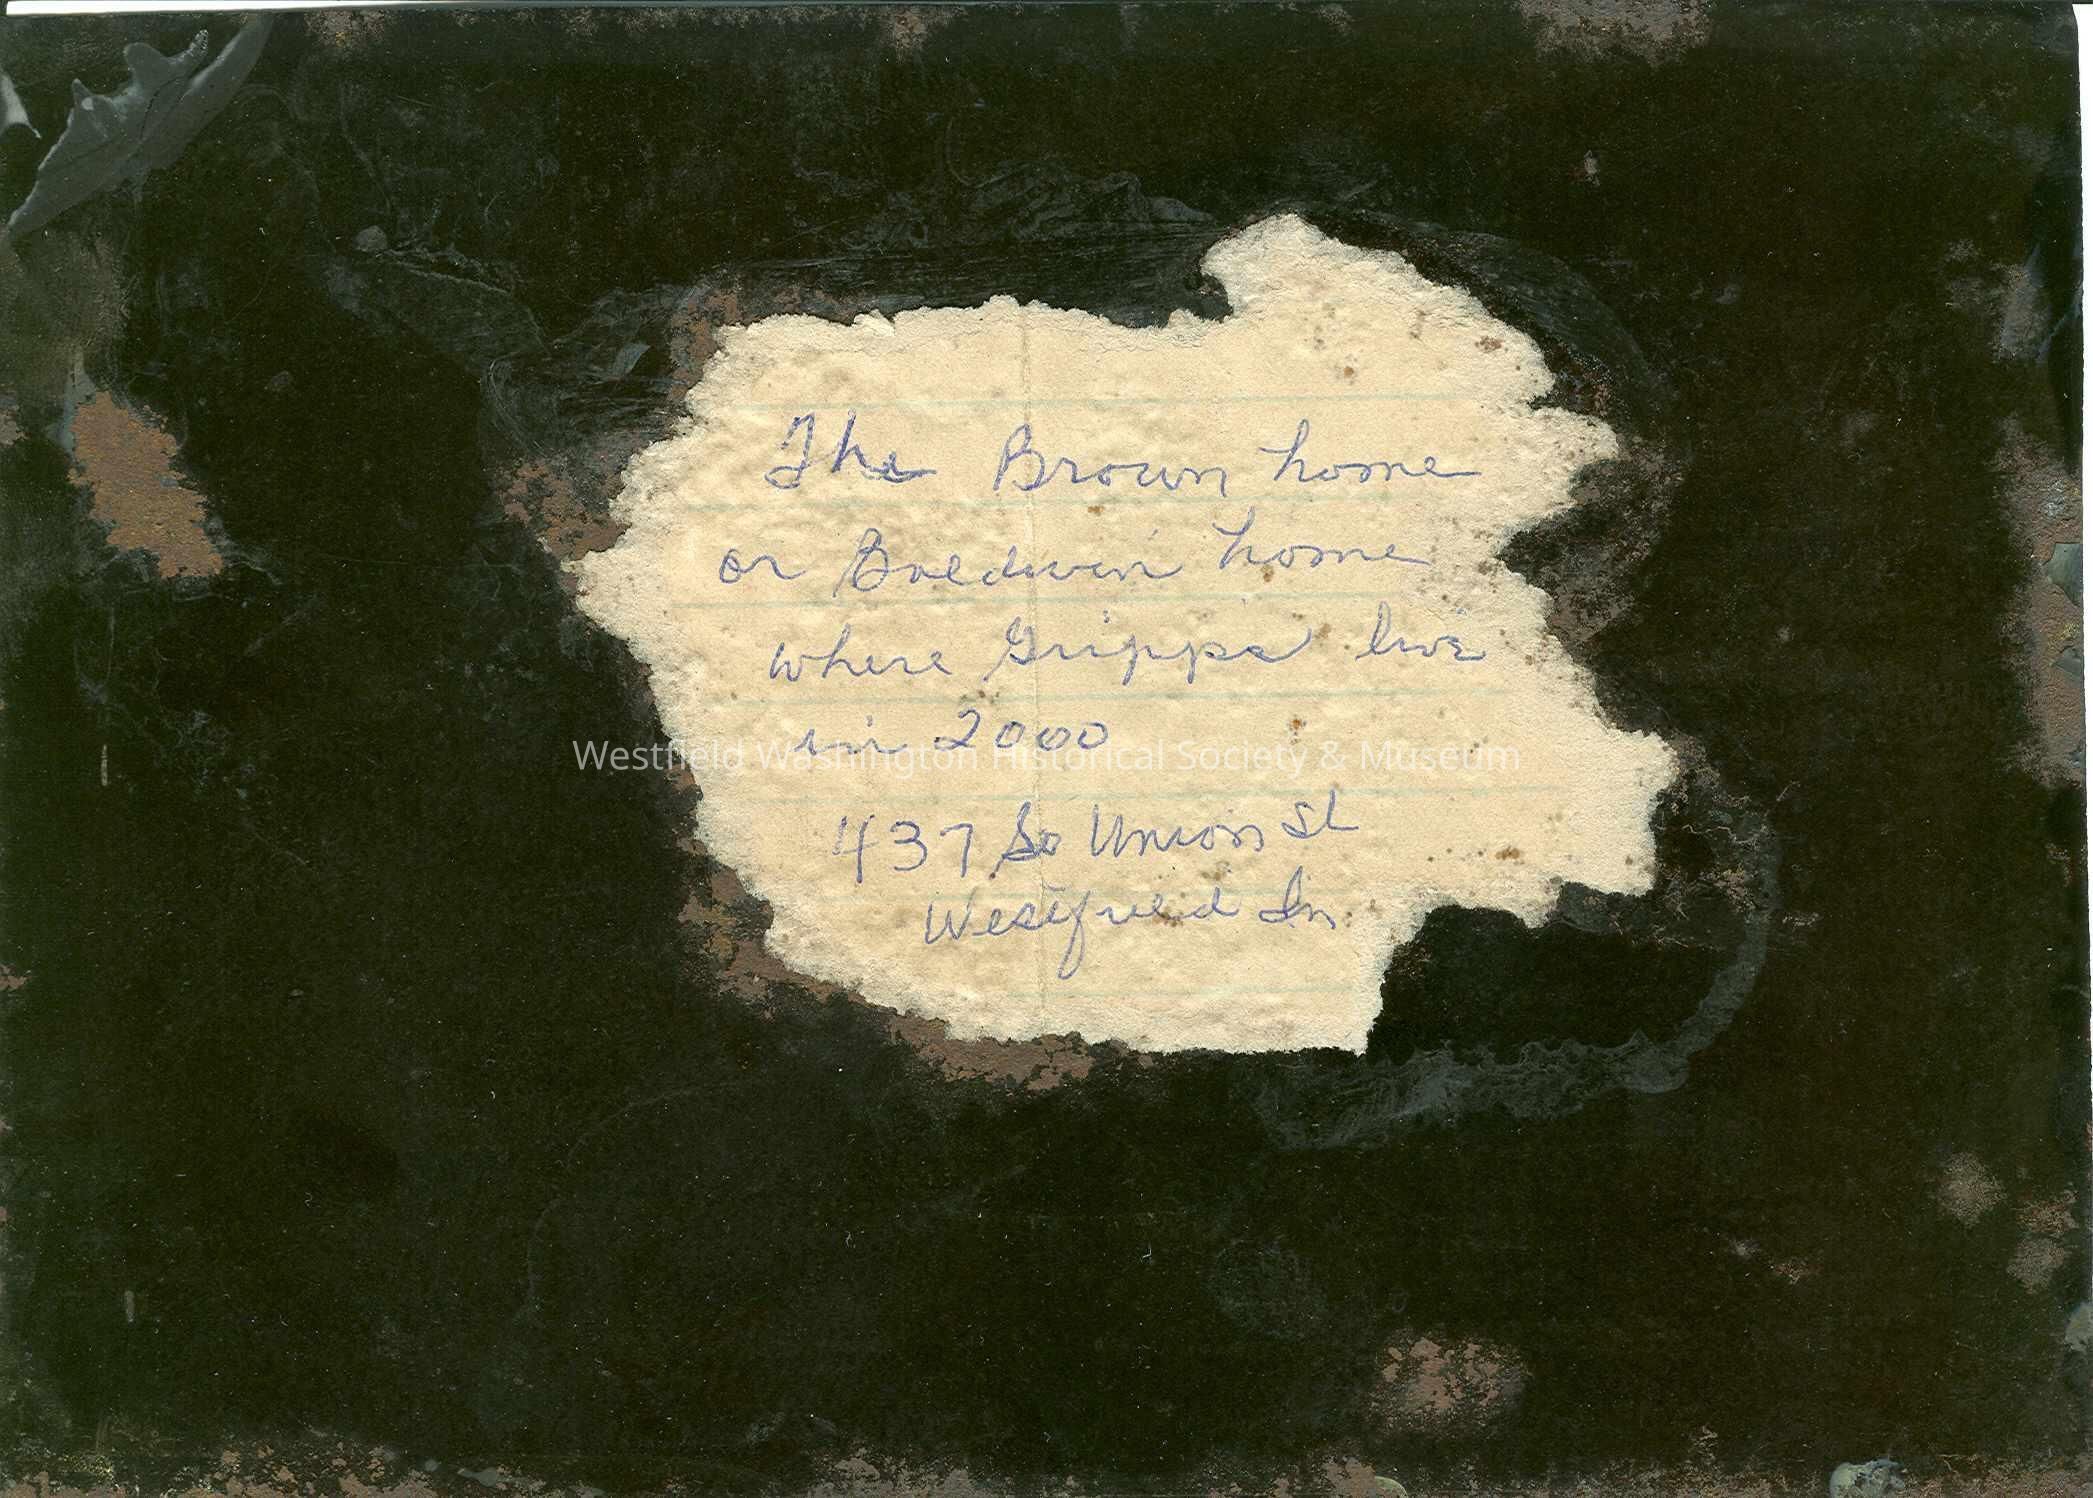 The Brown home
or Baldwin home
where Gripps live
in 2000
Westfield Washington Historical Society & Museum
437 So Union St
Westfield In